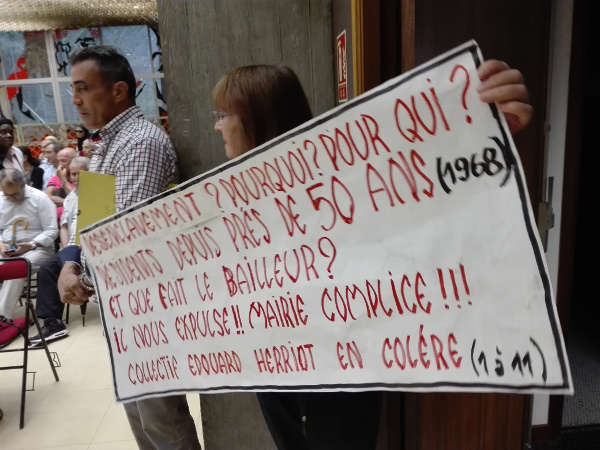 DÉSENCLAVEMENT ? POURQUOI ? POUR QUI ?
RÉSIDENTS DEPUIS PRÈS DE 50 ANS (1968)
ET QUE FAIT LE BAILLEUR ?
IL NOUS EXPULSE !! MAIRIE COMPLICE !!!
COLLECTIF EDOUARD HERRIOT EN COLÉRE (1 à 11)